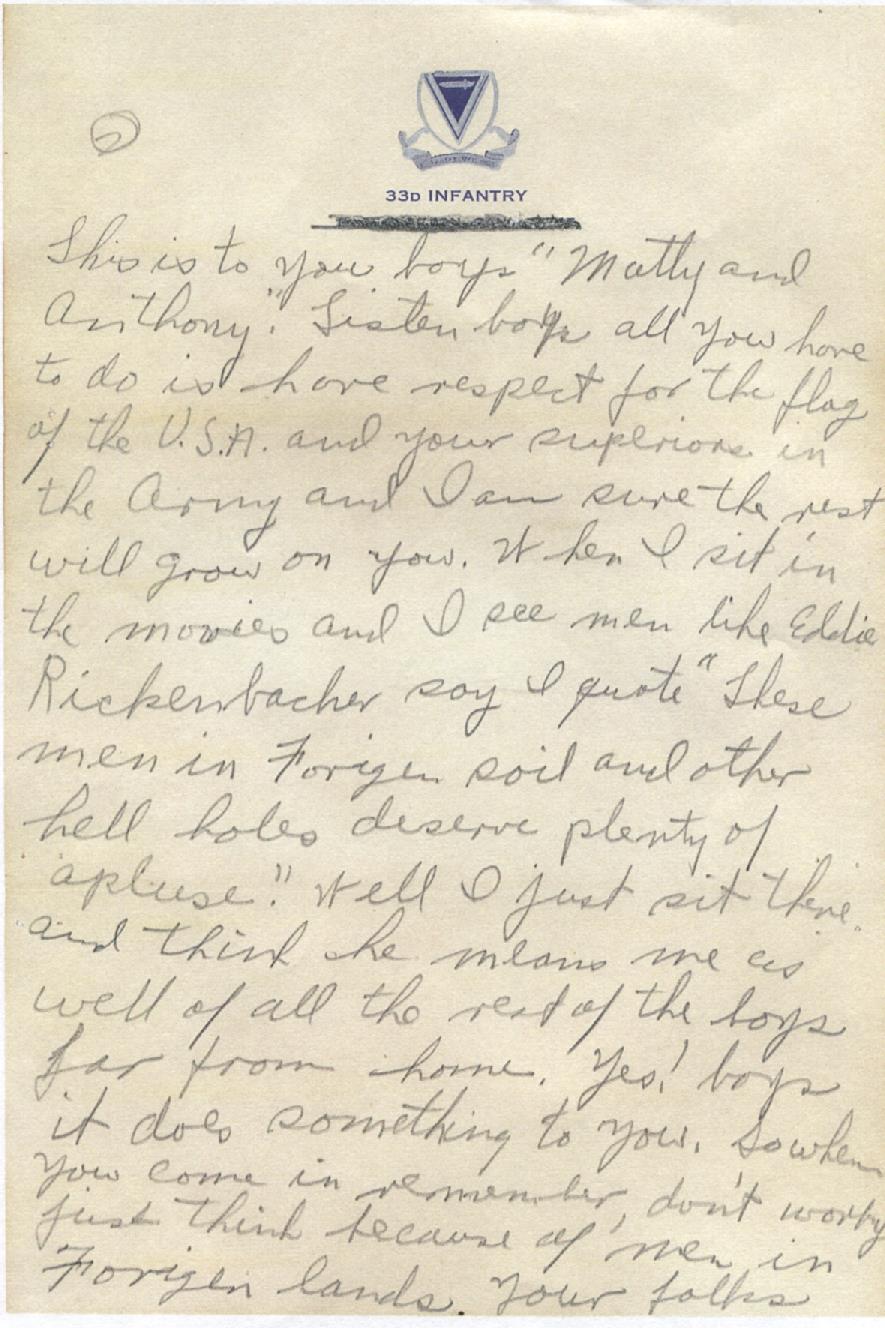 2
33D INFANTRY
This is to you boys "Matty and
Anthony". Listen boys all you have
to do is have respect for the flag
of the U.S.A. and your superiors in
the Army and I am sure the rest
will grow on you. When I sit in
the movies and I see men like Eddie
Rickenbacher say I quote "These
men in Forigen soil and other
hell holes deserve plenty of
apluse". Well I just sit there
and think he means me as
well of all the rest of the boys
far from home. Yes! boys
it does something to you. So when
you come in remember, don't worry
just think because of men in
Forigen lands. Your folks